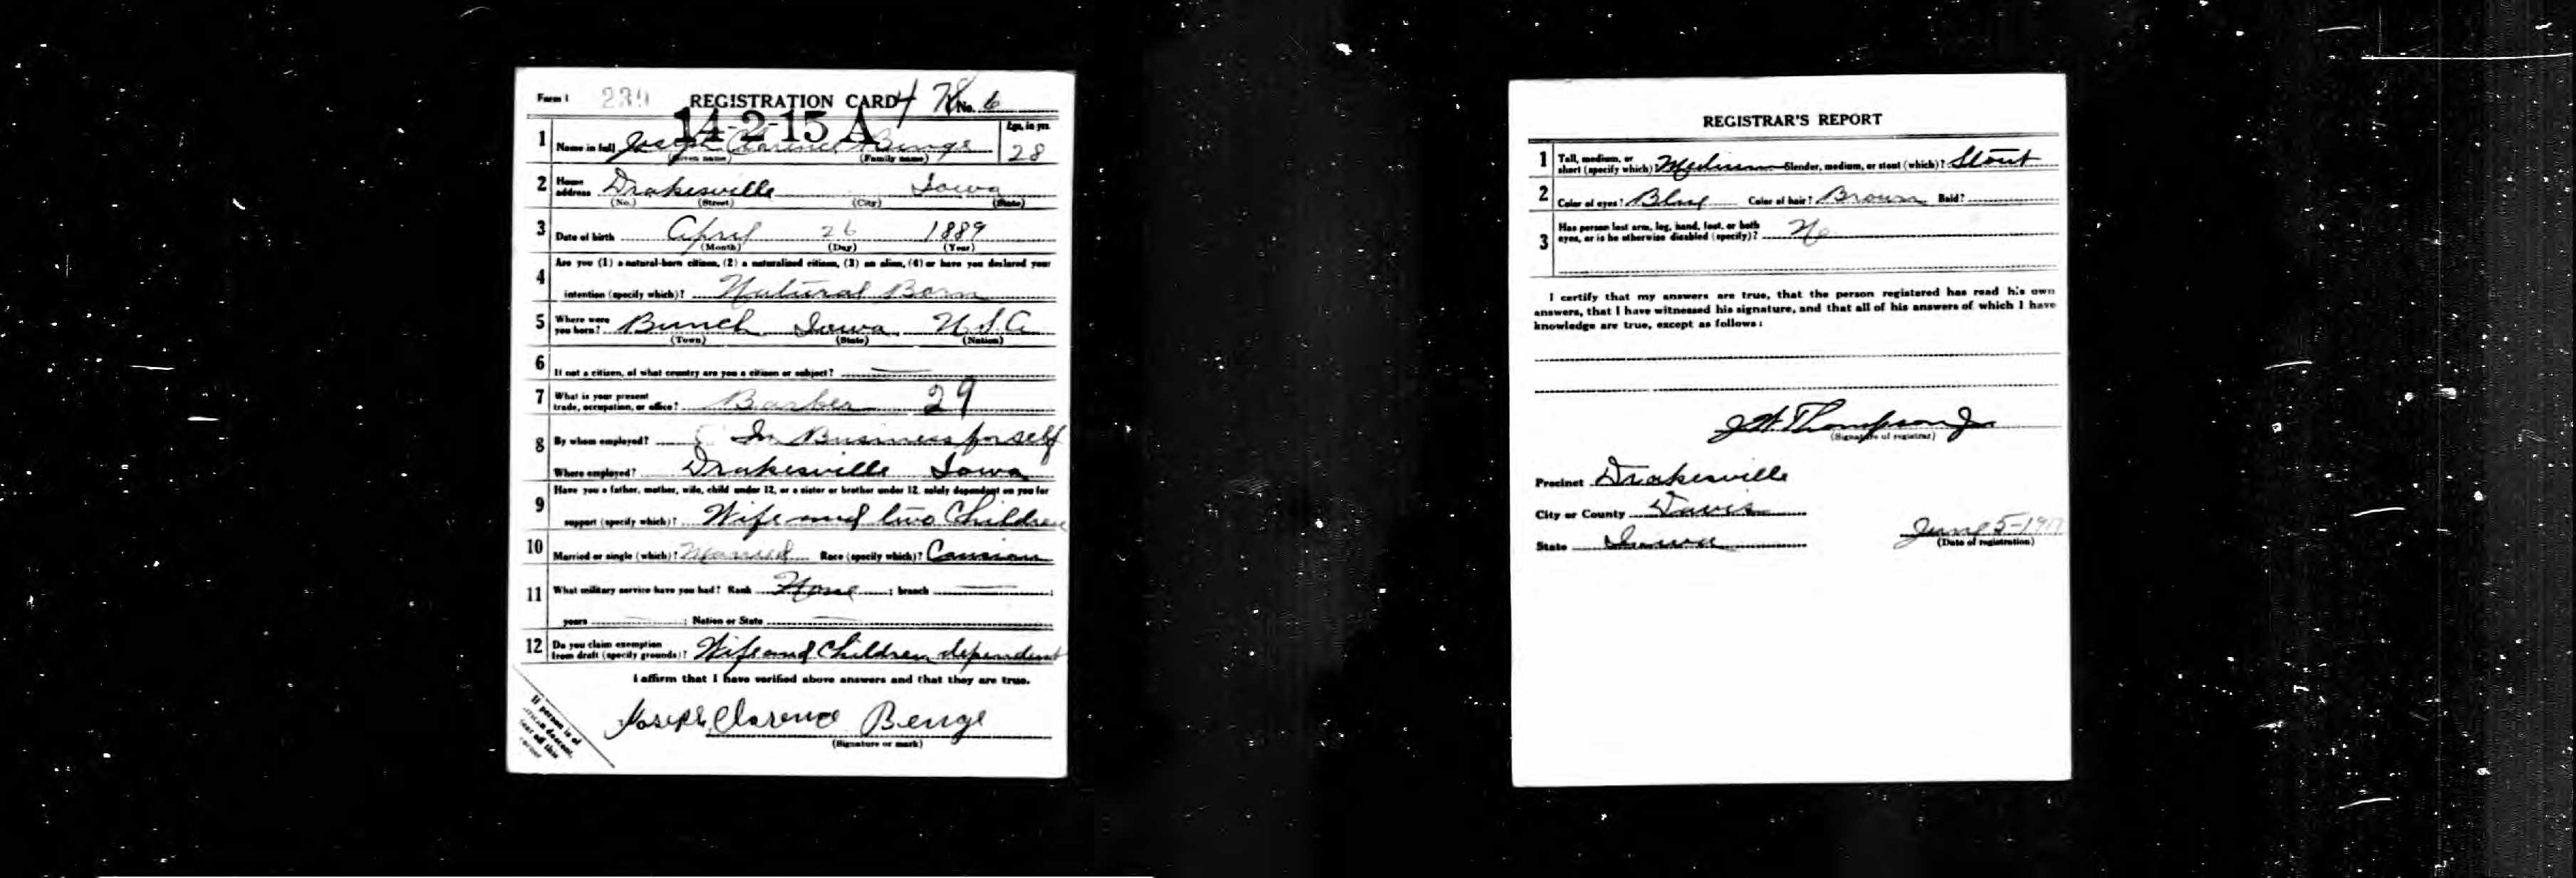 Form 1 239 REGISTRATION CARD 4 78 No. 6
14-2-15 A
1 Name in full Joseph Clarence Benge Age, in yrs. 28
(Given name) (Family name)
2 Home address Drakesville Iowa
(No.) (Street) (City) (State)
3 Date of birth April 26 1889
(Month) (Day) (Year)
4 Are you (1) a natural-born citizen, (2) a naturalized citizen, (3) an alien, (4) or have you declared your
intention (specify which)? Natural Born
5 Where were you born? Bunch Iowa U.S.A
(Town) (State) (Nation)
6 If not a citizen, of what country are you a citizen or subject?
7 What is your present trade, occupation, or office? Barber 29
8 By whom employed? In Business for self
Where employed? Drakesville Iowa
9 Have you a father, mother, wife, child under 12, or a sister or brother under 12, solely dependent on you for
support (specify which)? Wife and two Children
10 Married or single (which)? Married Race (specify which)?
11 What military service have you had? Rank None ; branch ;
years ; Nation or State
12 Do you claim exemption from draft (specify grounds)? Wife and Children dependent
I affirm that I have verified above answers and that they are true.
Joseph Clarence Benge
(Signature or mark)
If person is of
descent,
off this
corner
REGISTRAR'S REPORT
1 Tall, medium, or short (specify which)? Medium Slender, medium, or stout (which)? Stout
2 Color of eyes? Blue Color of hair? Brown Bald?
3 Has person lost arm, leg, hand, foot, or both eyes, or is he otherwise disabled (specify)? No
I certify that my answers are true, that the person registered has read his own
answers, that I have witnessed his signature, and that all of his answers of which I have
knowledge are true, except as follows:
J W Thompson Jr
(Signature of registrar)
Precinct Drakesville
City or County Davis
State Iowa June 5-1917
(Date of registration)